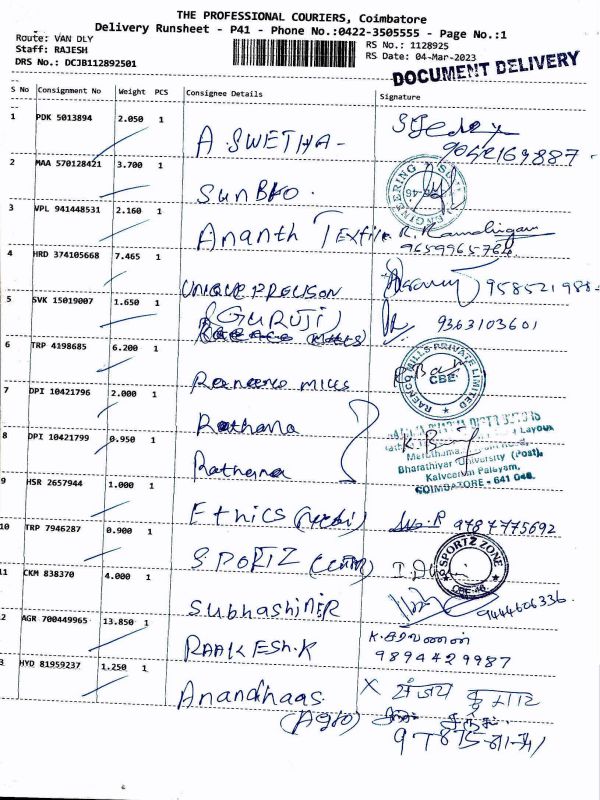 THE PROFESSIONAL COURIERS, Coimbatore
Delivery Runsheet - P41 - Phone No.:0422-3505555 - Page No.:1
Route: VAN DLY
RS No.: 1128925
Staff: RAJESH
RS Date: 04-Mar-2023
DRS No.: DCJB112892501
DOCUMENT DELIVERY
S No Consignment No Weight PCS Consignee Details Signature
1 PDK 5013894 2.050 1 A SWETHA -
9042169887
2 MAA 570128421 3.700 1 Sun Bko
ENGINEERING
3 VPL 941448531 2.160 1 Ananth Textile R. Ramalingam
9659965764
4 HRD 374105668 7.465 1 UNIQUE PRECISON
5 SVK 15019007 1.650 1 (GURUJI) 9363103601
6 TRP 4198685 6.200 1 Raneeno mills
RAENCO MILLS PRIVATE LIMITED
CBE
7 DPI 10421796 2.000 1 Rathana
8 DPI 10421799 0.950 1 Rathana
Bharathiyar University (Post),
Kalveeram Palayam,
COIMBATORE - 641 046.
9 HSR 2657944 1.000 1 Ethics 9787775692
10 TRP 7946287 0.900 1 SPORTZ
SPORTZ ZONE
CBE-46
11 CKM 838370 4.000 1 SUBHASHINER
9444606336
2 AGR 700449965 13.850 1 RAAKESH.K
K. சரவணன்
9894429987
3 HYD 81959237 1.250 1 Anandhaas
X சஞ்சய் குமார்